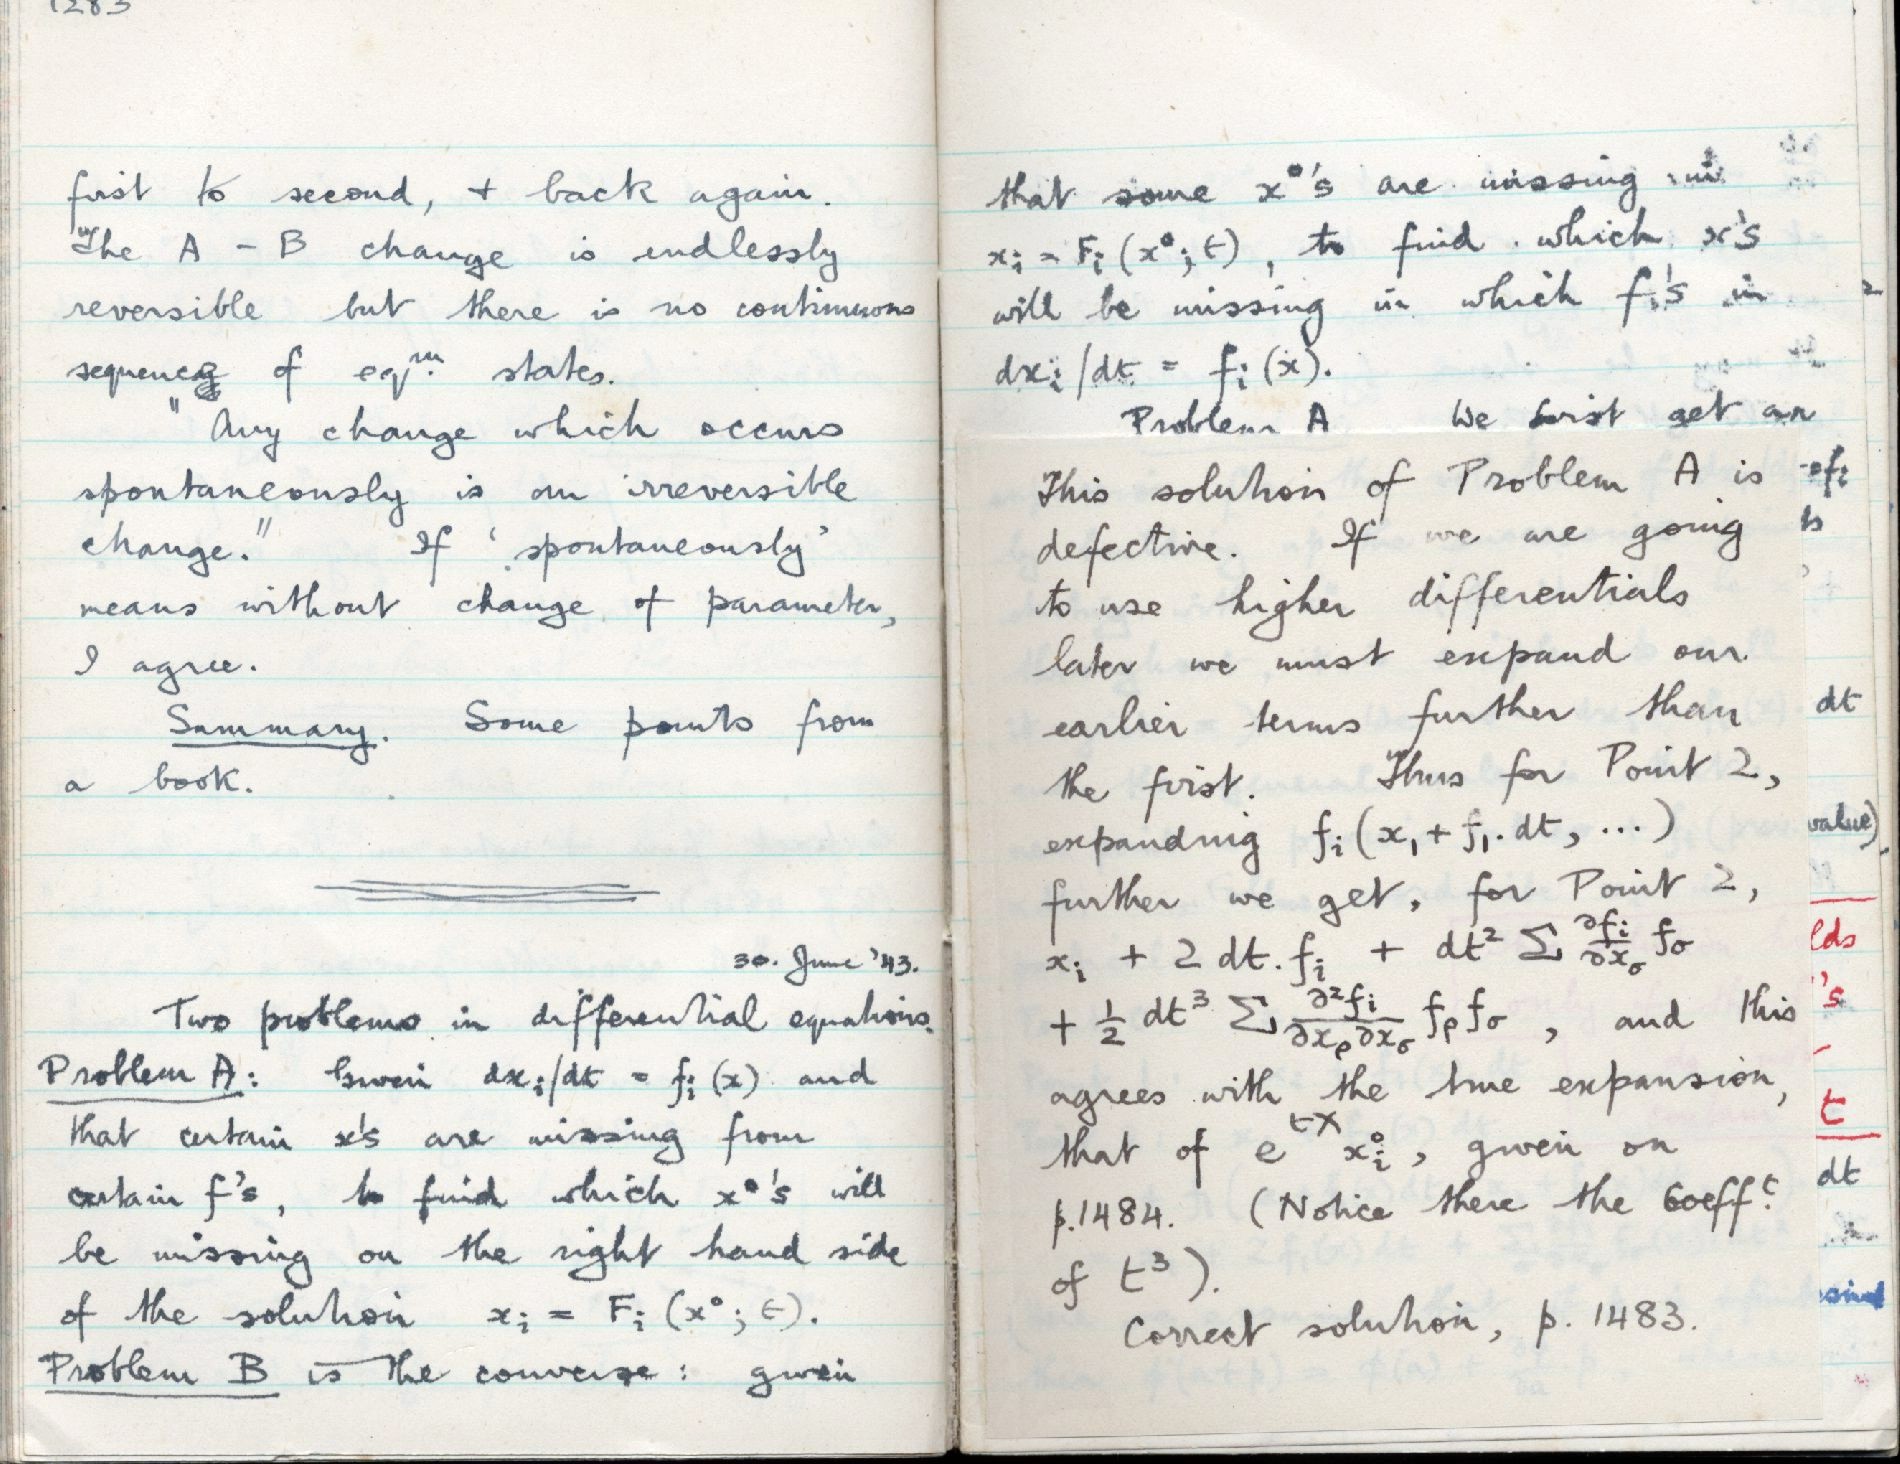 1283
first to second, + back again.
The A - B change is endlessly
reversible but there is no continuous
sequence of eqᵐ. states.
"Any change which occurs
spontaneously is an irreversible
change." If 'spontaneously'
means without change of parameter,
I agree.
Summary. Some points from
a book.
30. June '43.
Two problems in differential equations.
Problem A: Given dxᵢ/dt = fᵢ(x) and
that certain x's are missing from
certain f's, to find which x⁰'s will
be missing on the right hand side
of the solution xᵢ = Fᵢ(x⁰; t).
Problem B is the converse: given
that some x⁰'s are missing in
xᵢ = Fᵢ(x⁰; t), to find which x's
will be missing in which fᵢ's in
dxᵢ/dt = fᵢ(x).
Problem A We first get an
This solution of Problem A is
defective. If we are going
to use higher differentials
later we must expand our
earlier terms further than
the first. Thus for Point 2,
expanding fᵢ(x₁ + f₁.dt, ...)
further we get, for Point 2,
xᵢ + 2 dt.fᵢ + dt² Σ ∂fᵢ/∂x_σ f_σ
+ ½ dt³ Σ ∂²fᵢ/∂x_ρ∂x_σ f_ρ f_σ, and this
agrees with the true expansion,
that of e^{tX} xᵢ⁰, given on
p.1484. (Notice there the coeffᵗ.
of t³).
Correct solution, p. 1483.
dt
value)
t
dt